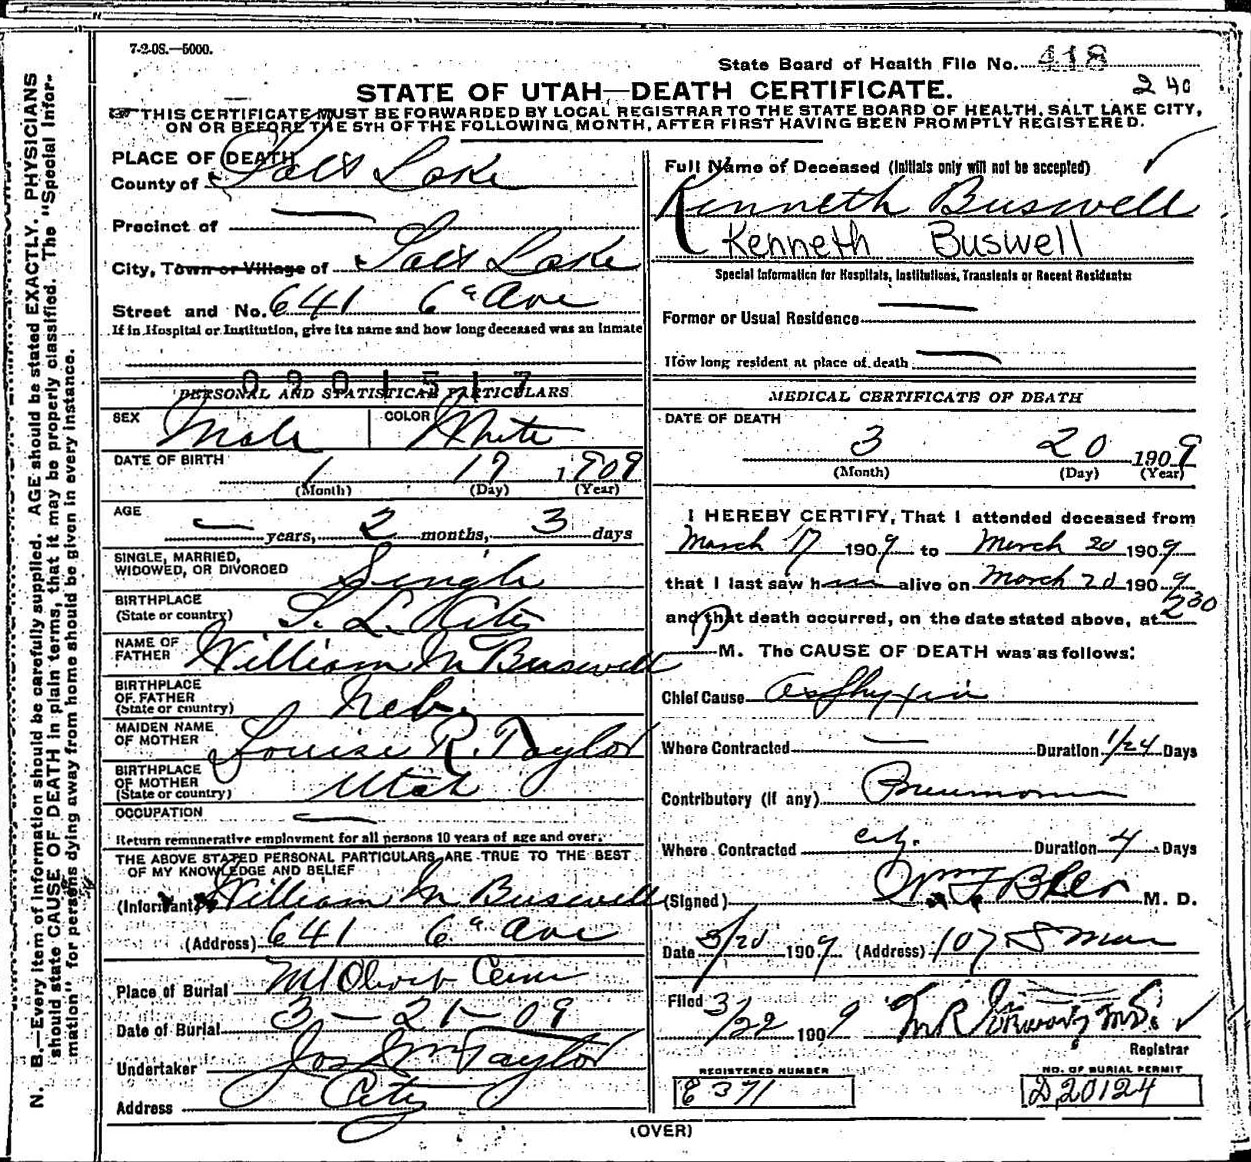 7-2-08.—5000.
State Board of Health File No. 418
240
STATE OF UTAH—DEATH CERTIFICATE.
THIS CERTIFICATE MUST BE FORWARDED BY LOCAL REGISTRAR TO THE STATE BOARD OF HEALTH, SALT LAKE CITY,
ON OR BEFORE THE 5TH OF THE FOLLOWING MONTH, AFTER FIRST HAVING BEEN PROMPTLY REGISTERED.
N. B.—Every item of information should be carefully supplied. AGE should be stated EXACTLY. PHYSICIANS
should state CAUSE OF DEATH in plain terms, that it may be properly classified. The "Special Infor-
mation" for persons dying away from home should be given in every instance.
PLACE OF DEATH
County of Salt Lake
Precinct of —
City, Town or Village of Salt Lake
Street and No. 641 6th Ave
If in Hospital or Institution, give its name and how long deceased was an inmate
0901517
PERSONAL AND STATISTICAL PARTICULARS
SEX Male COLOR White
DATE OF BIRTH 1 17 1909
(Month) (Day) (Year)
AGE — years, 2 months, 3 days
SINGLE, MARRIED,
WIDOWED, OR DIVORCED Single
BIRTHPLACE
(State or country) S. L. City
NAME OF
FATHER William M Buswell
BIRTHPLACE
OF FATHER
(State or country) Neb.
MAIDEN NAME
OF MOTHER Louise R. Taylor
BIRTHPLACE
OF MOTHER
(State or country) Utah
OCCUPATION —
Return remunerative employment for all persons 10 years of age and over.
THE ABOVE STATED PERSONAL PARTICULARS ARE TRUE TO THE BEST
OF MY KNOWLEDGE AND BELIEF
(Informant) William M Buswell
(Address) 641 6th Ave
Place of Burial Mt Olivet Cem
Date of Burial 3-21-09
Undertaker Jos Wm Taylor
Address City
Full Name of Deceased (Initials only will not be accepted)
Kenneth Buswell
Kenneth Buswell
Special Information for Hospitals, Institutions, Transients or Recent Residents:
Former or Usual Residence —
How long resident at place of death —
MEDICAL CERTIFICATE OF DEATH
DATE OF DEATH
3 20 1909
(Month) (Day) (Year)
I HEREBY CERTIFY, That I attended deceased from
March 17 1909 to March 20 1909
that I last saw him alive on March 20 1909
and that death occurred, on the date stated above, at 2 30
P M. The CAUSE OF DEATH was as follows:
Chief Cause Asphyxia
Where Contracted — Duration 1/24 Days
Contributory (if any) Pneumonia
Where Contracted city. Duration 4 Days
(Signed) Wm F Beer M. D.
Date 3/20 1909 (Address) 107 S Main
Filed 3/22 1909 M R M.D.
Registrar
REGISTERED NUMBER
E 371
NO. OF BURIAL PERMIT
D 20124
(OVER)